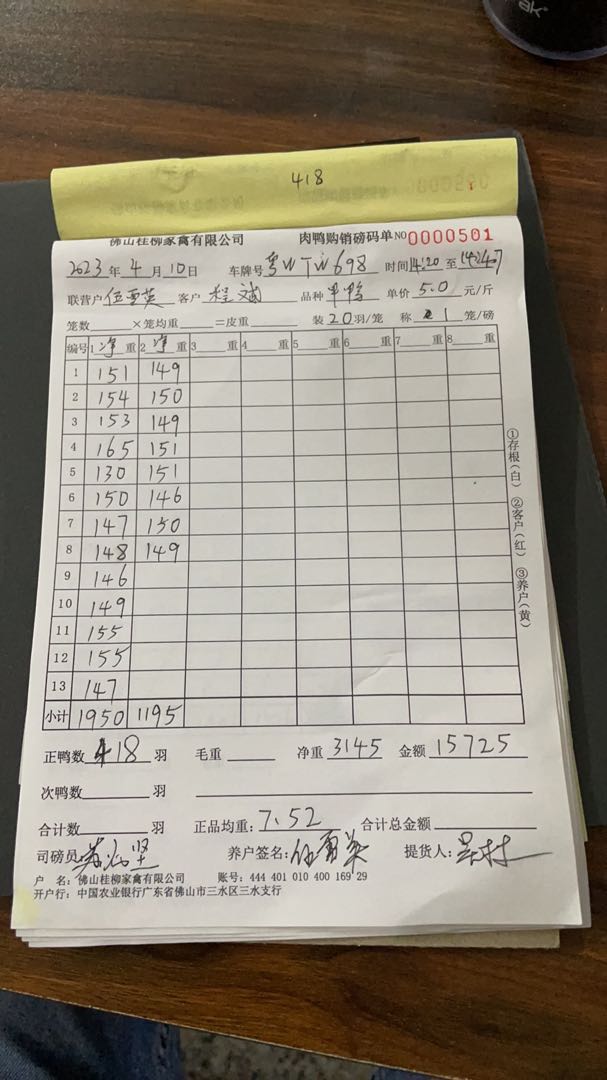 418
佛山桂柳家禽有限公司 肉鸭购销磅码单 NO 0000501
2023年4月10日 车牌号 粤WTW698 时间14:20至14:47
联营户 伍雪英 客户 程斌 品种 单鸭 单价 5.0 元/斤
笼数 ×笼均重 =皮重 装20羽/笼 称1笼/磅
编号 1净重 2净重 3 重 4 重 5 重 6 重 7 重 8 重
1 151 149
2 154 150
3 153 149
4 165 151
5 130 151
6 150 146
7 147 150
8 148 149
9 146
10 149
11 155
12 155
13 147
小计 1950 1195
①存根(白) ②客户(红) ③养户(黄)
正鸭数 418 羽 毛重 净重 3145 金额 15725
次鸭数 羽
合计数 羽 正品均重: 7.52 合计总金额
司磅员 养户签名: 提货人:
户 名: 佛山桂柳家禽有限公司 账号: 444 401 010 400 169 29
开户行: 中国农业银行广东省佛山市三水区三水支行